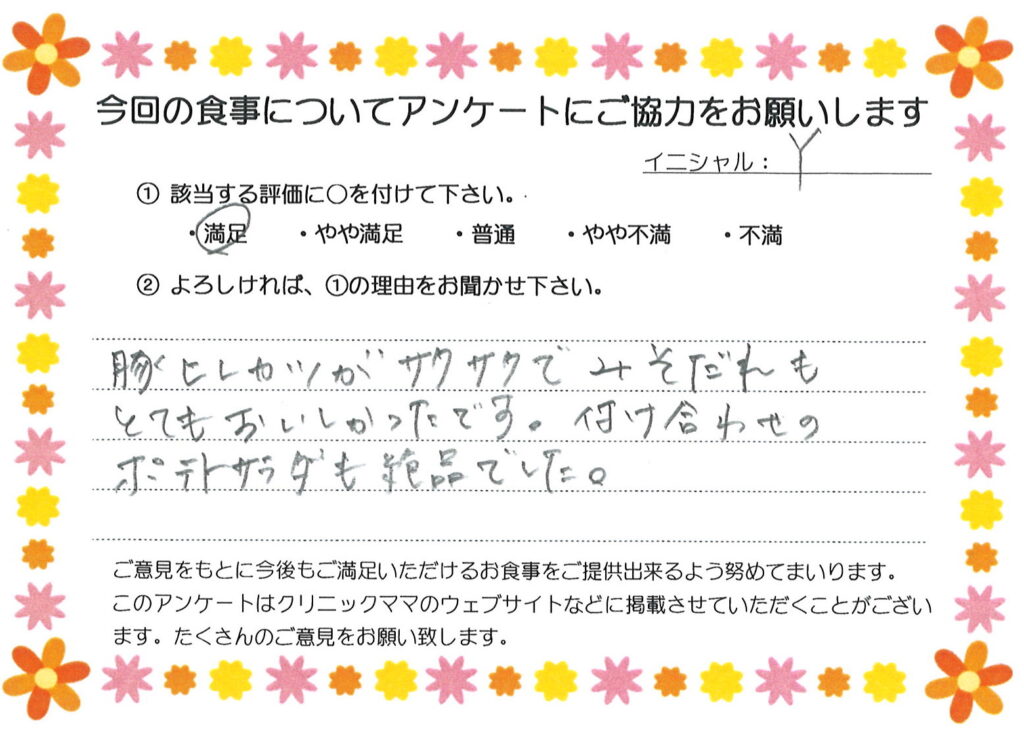 今回の食事についてアンケートにご協力をお願いします
イニシャル： Y
① 該当する評価に〇を付けて下さい。
・満足 ・やや満足 ・普通 ・やや不満 ・不満
② よろしければ、①の理由をお聞かせ下さい。
豚ヒレカツがサクサクで みそだれも
とてもおいしかったです。付け合わせの
ポテトサラダも絶品でした。
ご意見をもとに今後もご満足いただけるお食事をご提供出来るよう努めてまいります。
このアンケートはクリニックママのウェブサイトなどに掲載させていただくことがござい
ます。たくさんのご意見をお願い致します。